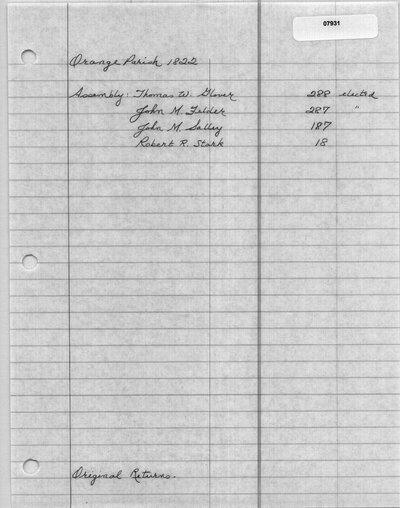 07931
Orange Parish 1822
Assembly: Thomas W. Glover 288 elected
John M. Felder 287 "
John M. Salley 187
Robert R. Stark 18
Original Returns.